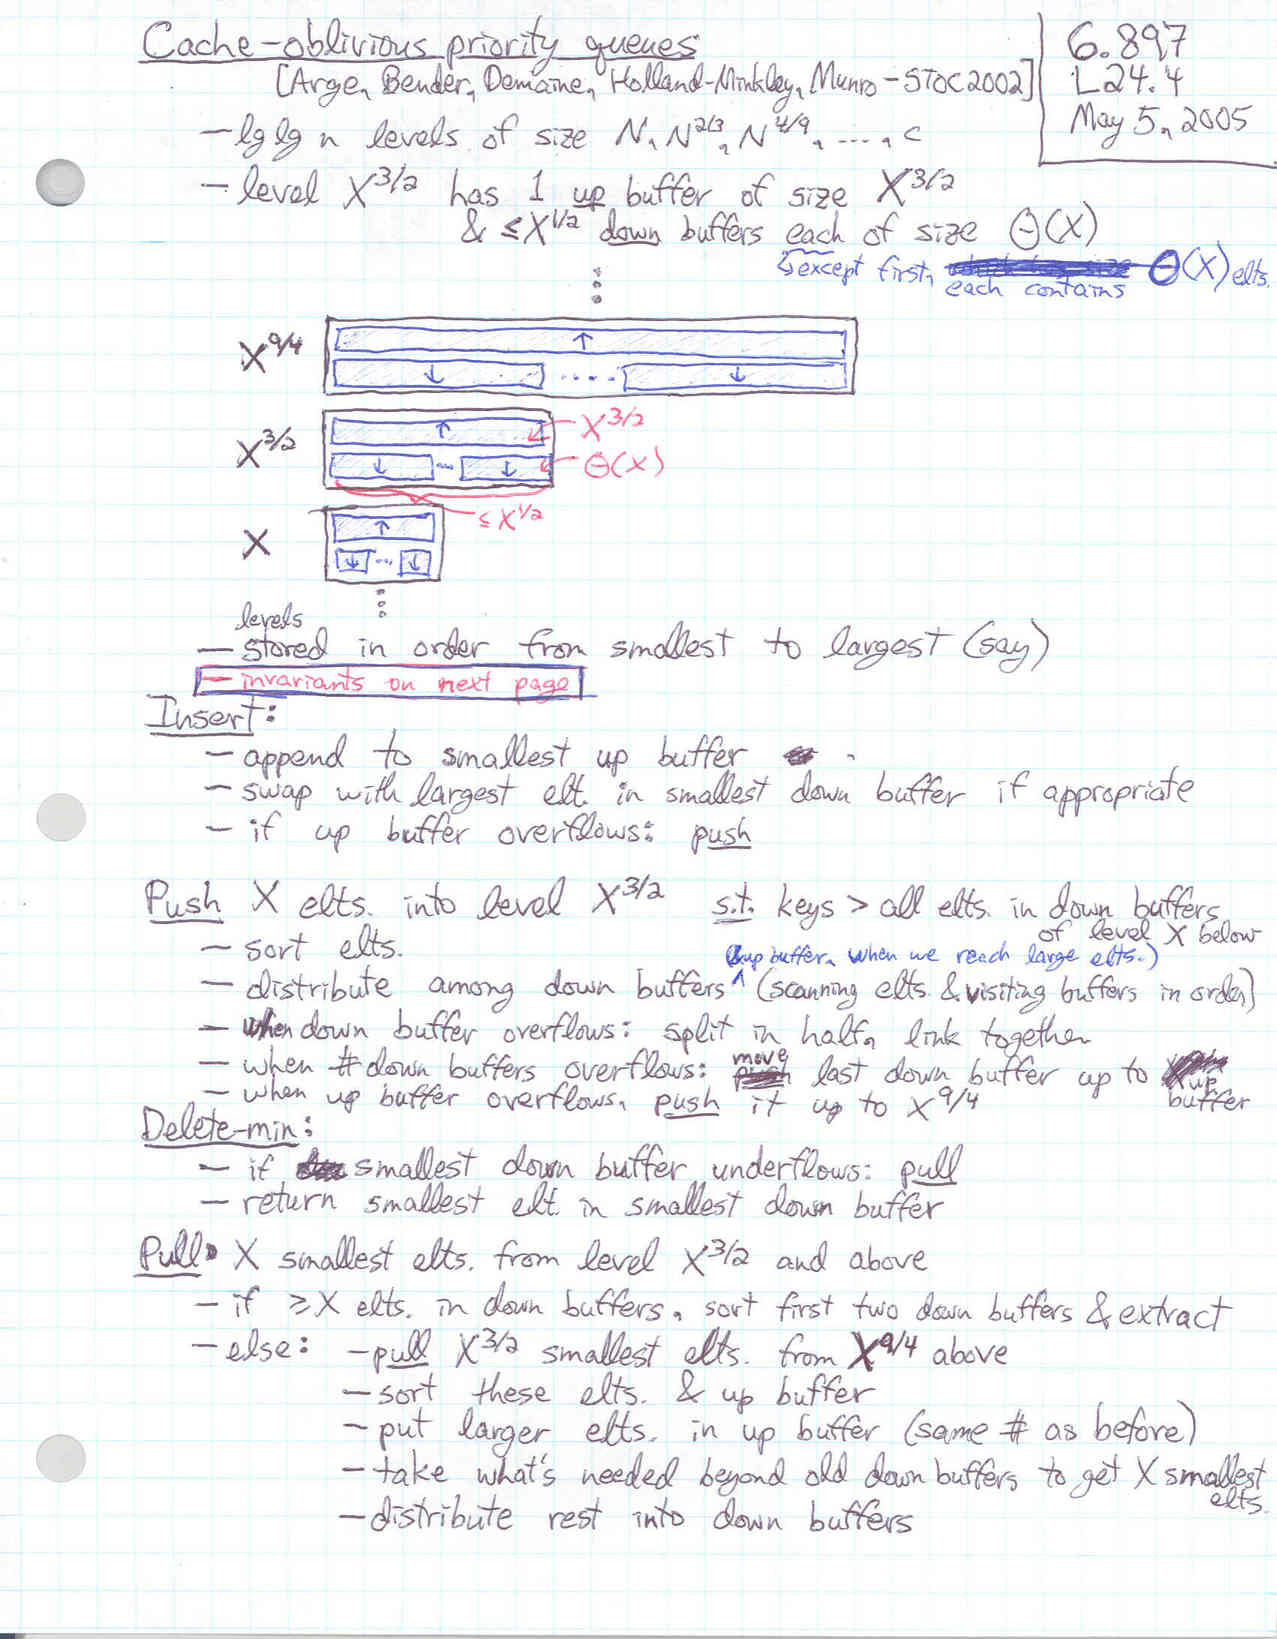 Cache-oblivious priority queues
6.897
L24.4
May 5, 2005
[Arge, Bender, Demaine, Holland-Minkley, Munro - STOC 2002]
- lg lg n levels of size N, N^2/3, N^4/9, ...., c
- level X^3/2 has 1 up buffer of size X^3/2
& ≤X^1/2 down buffers each of size Θ(X)
↳ except first, each contains Θ(X) elts.
X^9/4
↑
↓ .... ↓
X^3/2
↑ ← X^3/2
↓ ... ↓ ← Θ(X)
≤X^1/2
X
↑
↓ ... ↓
levels
- stored in order from smallest to largest (say)
- invariants on next page
Insert:
- append to smallest up buffer
- swap with largest elt. in smallest down buffer if appropriate
- if up buffer overflows: push
Push X elts. into level X^3/2 s.t. keys > all elts. in down buffers
of level X below
- sort elts.
(& up buffer, when we reach large elts.)
- distribute among down buffers ^ (scanning elts. & visiting buffers in order)
- when down buffer overflows: split in half, link together
- when # down buffers overflows: move last down buffer up to up
buffer
- when up buffer overflows, push it up to X^9/4
Delete-min:
- if smallest down buffer underflows: pull
- return smallest elt. in smallest down buffer
Pull X smallest elts. from level X^3/2 and above
- if ≥X elts. in down buffers, sort first two down buffers & extract
- else: - pull X^3/2 smallest elts. from X^9/4 above
- sort these elts. & up buffer
- put larger elts. in up buffer (same # as before)
- take what's needed beyond old down buffers to get X smallest
elts.
- distribute rest into down buffers